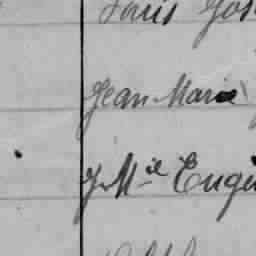 Louis Jos
Jean Marie
J. M.ie Eugè